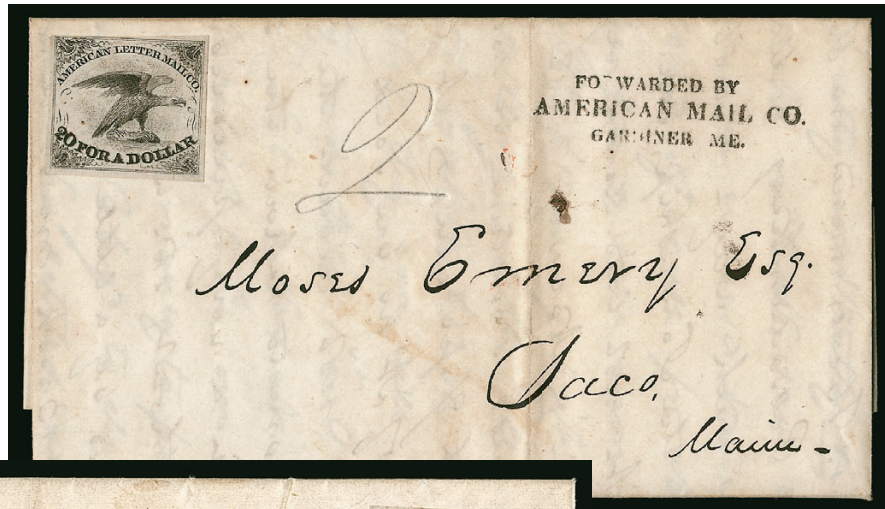 AMERICAN LETTER MAIL CO.
20 FOR A DOLLAR
2
FORWARDED BY
AMERICAN MAIL CO.
GARDINER ME.
Moses Emery Esq.
Saco,
Maine -